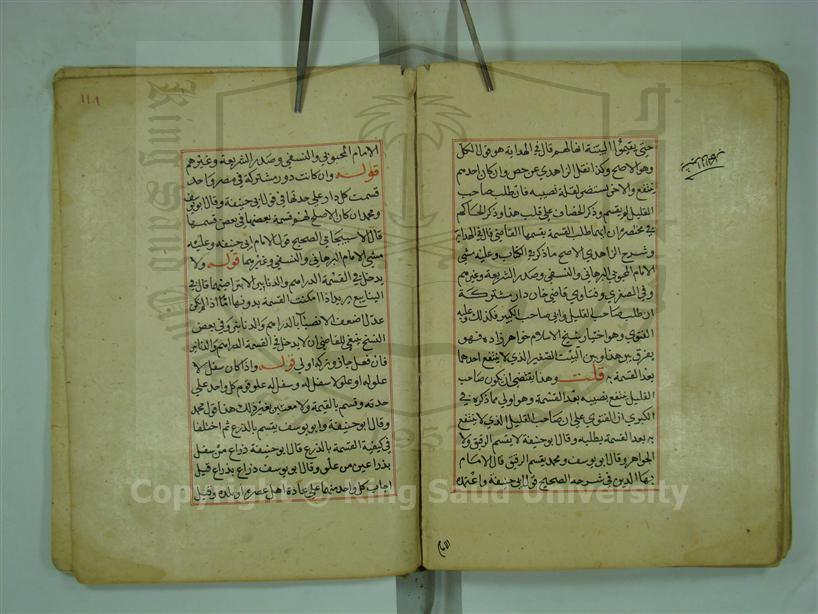 حتى يقيموا البينة انها لهم قال في الهداية هو قول الكل
وهو الاصح وكذا نقل الزاهدي عن جص وان كان احدهم
ينتفع والاخر يستضر لقلة نصيبه فان طلب صاحب
القليل لم يقسم وذكر الخصاف على قلب هذا وذكر الحاكم
في مختصره ان ايهما طلب القسمة يقسمها القاضي قال في الهداية
وشرح الزاهدي الاصح ما ذكر في الكتاب وعليه مشى
الامام المحبوبي البرهاني والنسفي وصدر الشريعة وغيرهم
وفي الصغرى وفتاوى قاضي خان دار مشتركة
ان طلب صاحب القليل وابى صاحب الكثير فكذلك وعليه
الفتوى وهو اختيار شيخ الاسلام خواهر زاده فهو
يفرق بين هذا وبين البيت الصغير الذي لا ينتفع احدهما
بعد القسمة به قلت وهذا يقتضي ان يكون صاحب
القليل ينتفع بنصيبه بعد القسمة وهو اولى مما ذكره في
الكبرى ان الفتوى على ان صاحب القليل الذي لا ينتفع
به بعد القسمة يطلبه وقال ابو حنيفة لا يقسم الرقيق ولا
الجواهر وقال ابو يوسف ومحمد يقسم الرقيق قال الامام
بهاء الدين في شرحه الصحيح قول ابي حنيفة واعتمده
الامام
١١٨
الامام المحبوبي والنسفي وصدر الشريعة وغيرهم
قوله وان كانت دور مشتركة في مصر واحد
قسمت كل دار على حدتها في قول ابي حنيفة وقال ابو يوسف
ومحمد ان كان الاصلح لهم قسمة بعضها في بعض قسمها
قال الاسبيجابي الصحيح قول الامام ابي حنيفة وعليه
مشى الامام البرهاني والنسفي وغيرهما قوله ولا
يدخل في القسمة الدراهم والدنانير الا بتراضيهما قال في
الينابيع يريد اذا امكنت القسمة بدونها اما اذا لم يكن
عدل اضعف الانصباء بالدراهم والدنانير وفي بعض
النسخ ينبغي للقاضي ان لا يدخل في القسمة الدراهم والدنانير
فان فعل جاز وتركه اولى قوله واذا كان سفل لا
علو له او علو لا سفل له وسفل له علو قوم كل واحد على
حدته وقسم بالقيمة ولا معتبر بغير ذلك هذا قول محمد
وقال ابو حنيفة وابو يوسف يقسم بالذرع ثم اختلفا
في كيفية القسمة بالذرع قال ابو حنيفة ذراع من سفل
بذراعين من علو وقال ابو يوسف ذراع بذراع قيل
اجاب كل واحد منهما على عادة اهل عصره او بلده وقيل
Copyright © King Saud University
King Saud